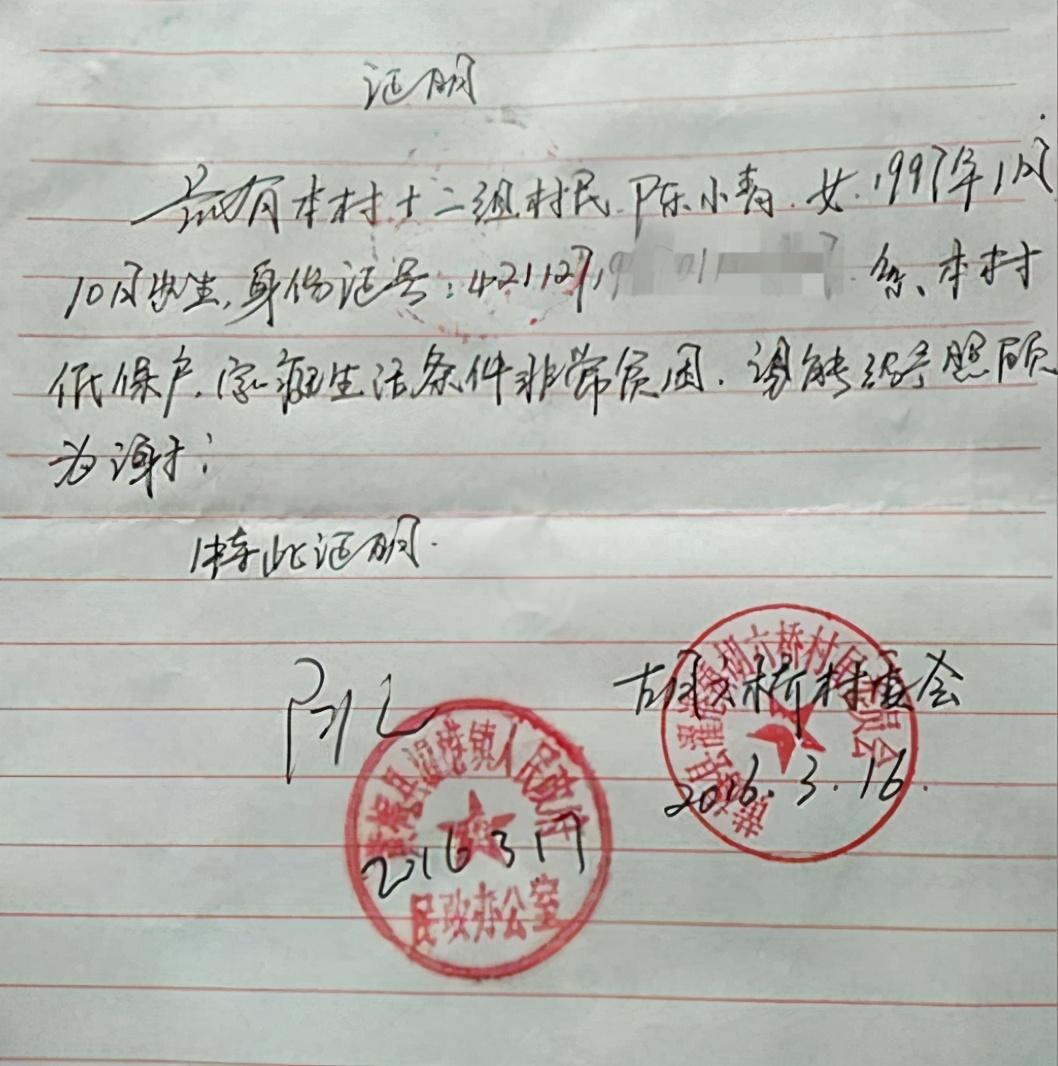 证明
兹有本村十二组村民陈小青.女.1997年1月
10日出生,身份证号:421127,19 01 7.系本村
低保户.家庭生活条件非常贫困.请能给予照顾
为谢!
特此证明.
古月六桥村委会
2016.3.16.
2016 3 17
黄梅县濯港镇人民政府
民政办公室
黄梅县濯港镇胡六桥村民委员会